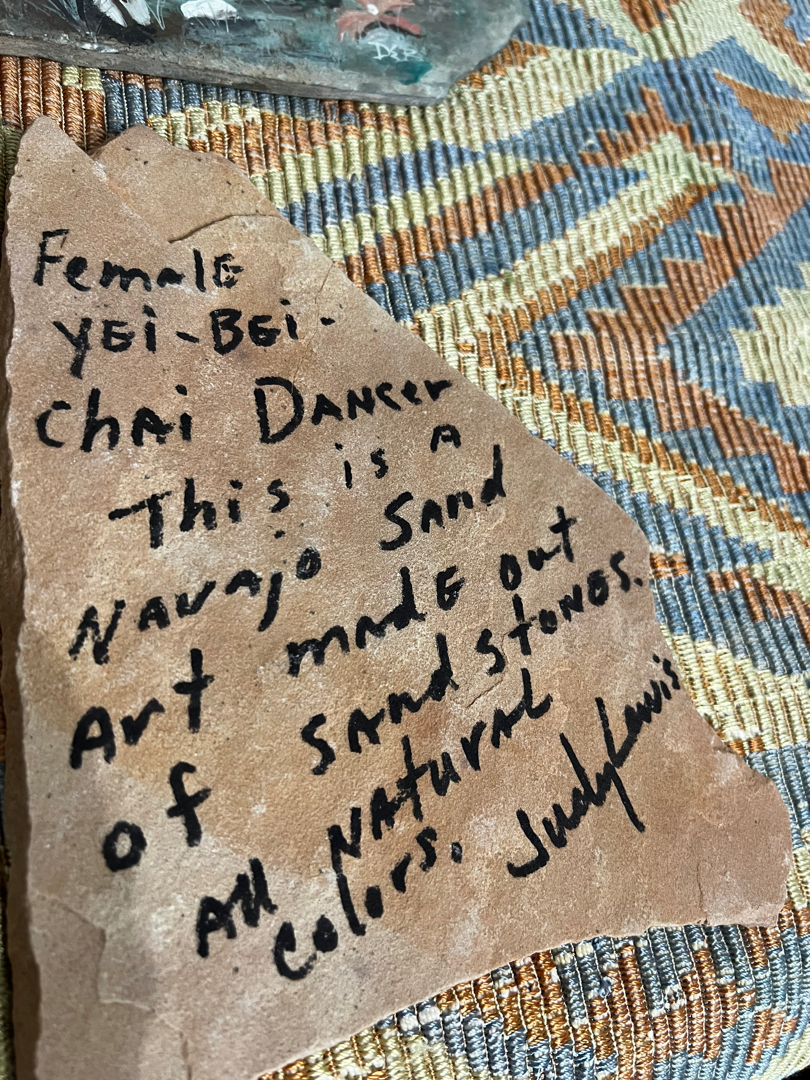 FemalE
YEi-BEi-
ChAi DANCer
This is A
NAVAjo SAnd
Art mAdE out
of SANdstONES.
All NATURAL
Colors. Judy Lewis